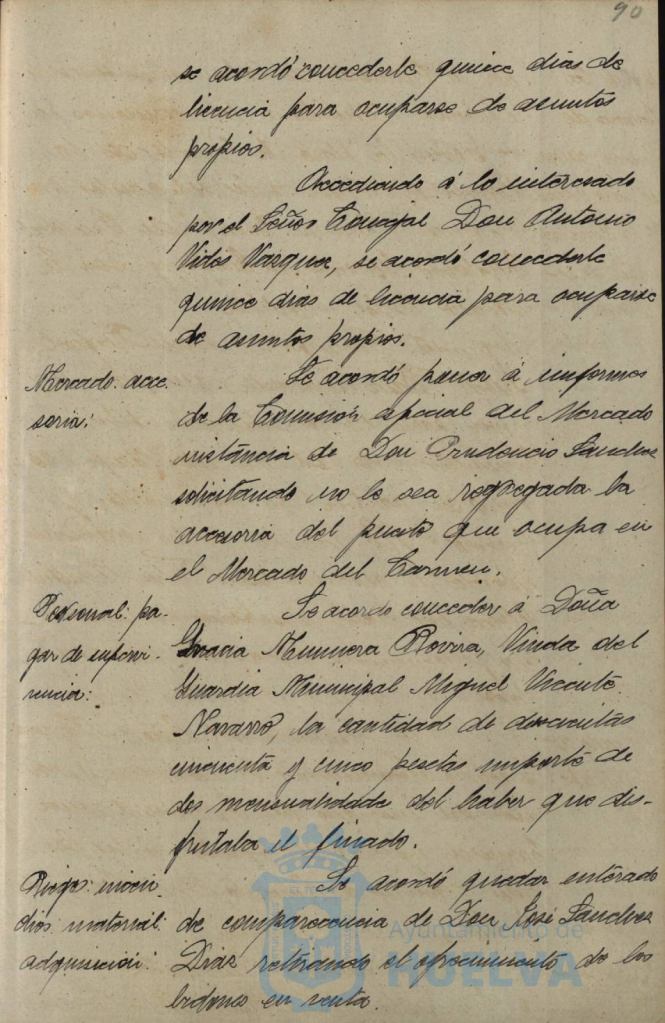 90
se acordó concederle quince dias de
licencia para ocuparse de asuntos
propios.
Accediendo á lo interesado
por el Señor Concejal Don Antonio
Vides Vazquez, se acordó concederle
quince dias de licencia para ocuparse
de asuntos propios.
Mercado: acce-
soria:
Se acordó pasar á informes
de la Comisión especial del Mercado
instancia de Don Prudencio Sanchez
solicitando no le sea segregada la
accesoria del puesto que ocupa en
el Mercado del Carmen.
Personal: pa-
gar de supervi-
vencia:
Se acordo conceder á Doña
Gracia Munnera Rovira, Viuda del
Guardia Municipal Miguel Vicente
Navarro, la cantidad de doscientas
cincuenta y cinco pesetas importe de
dos mensualidades del haber que dis-
frutaba el finado.
incen-
dios: material:
adquisición:
Se acordó quedar enterado
de comparecencia de Don José Sanchez
Diaz retirando el ofrecimiento de los
bidones en venta.
Ayuntamiento de
HUELVA